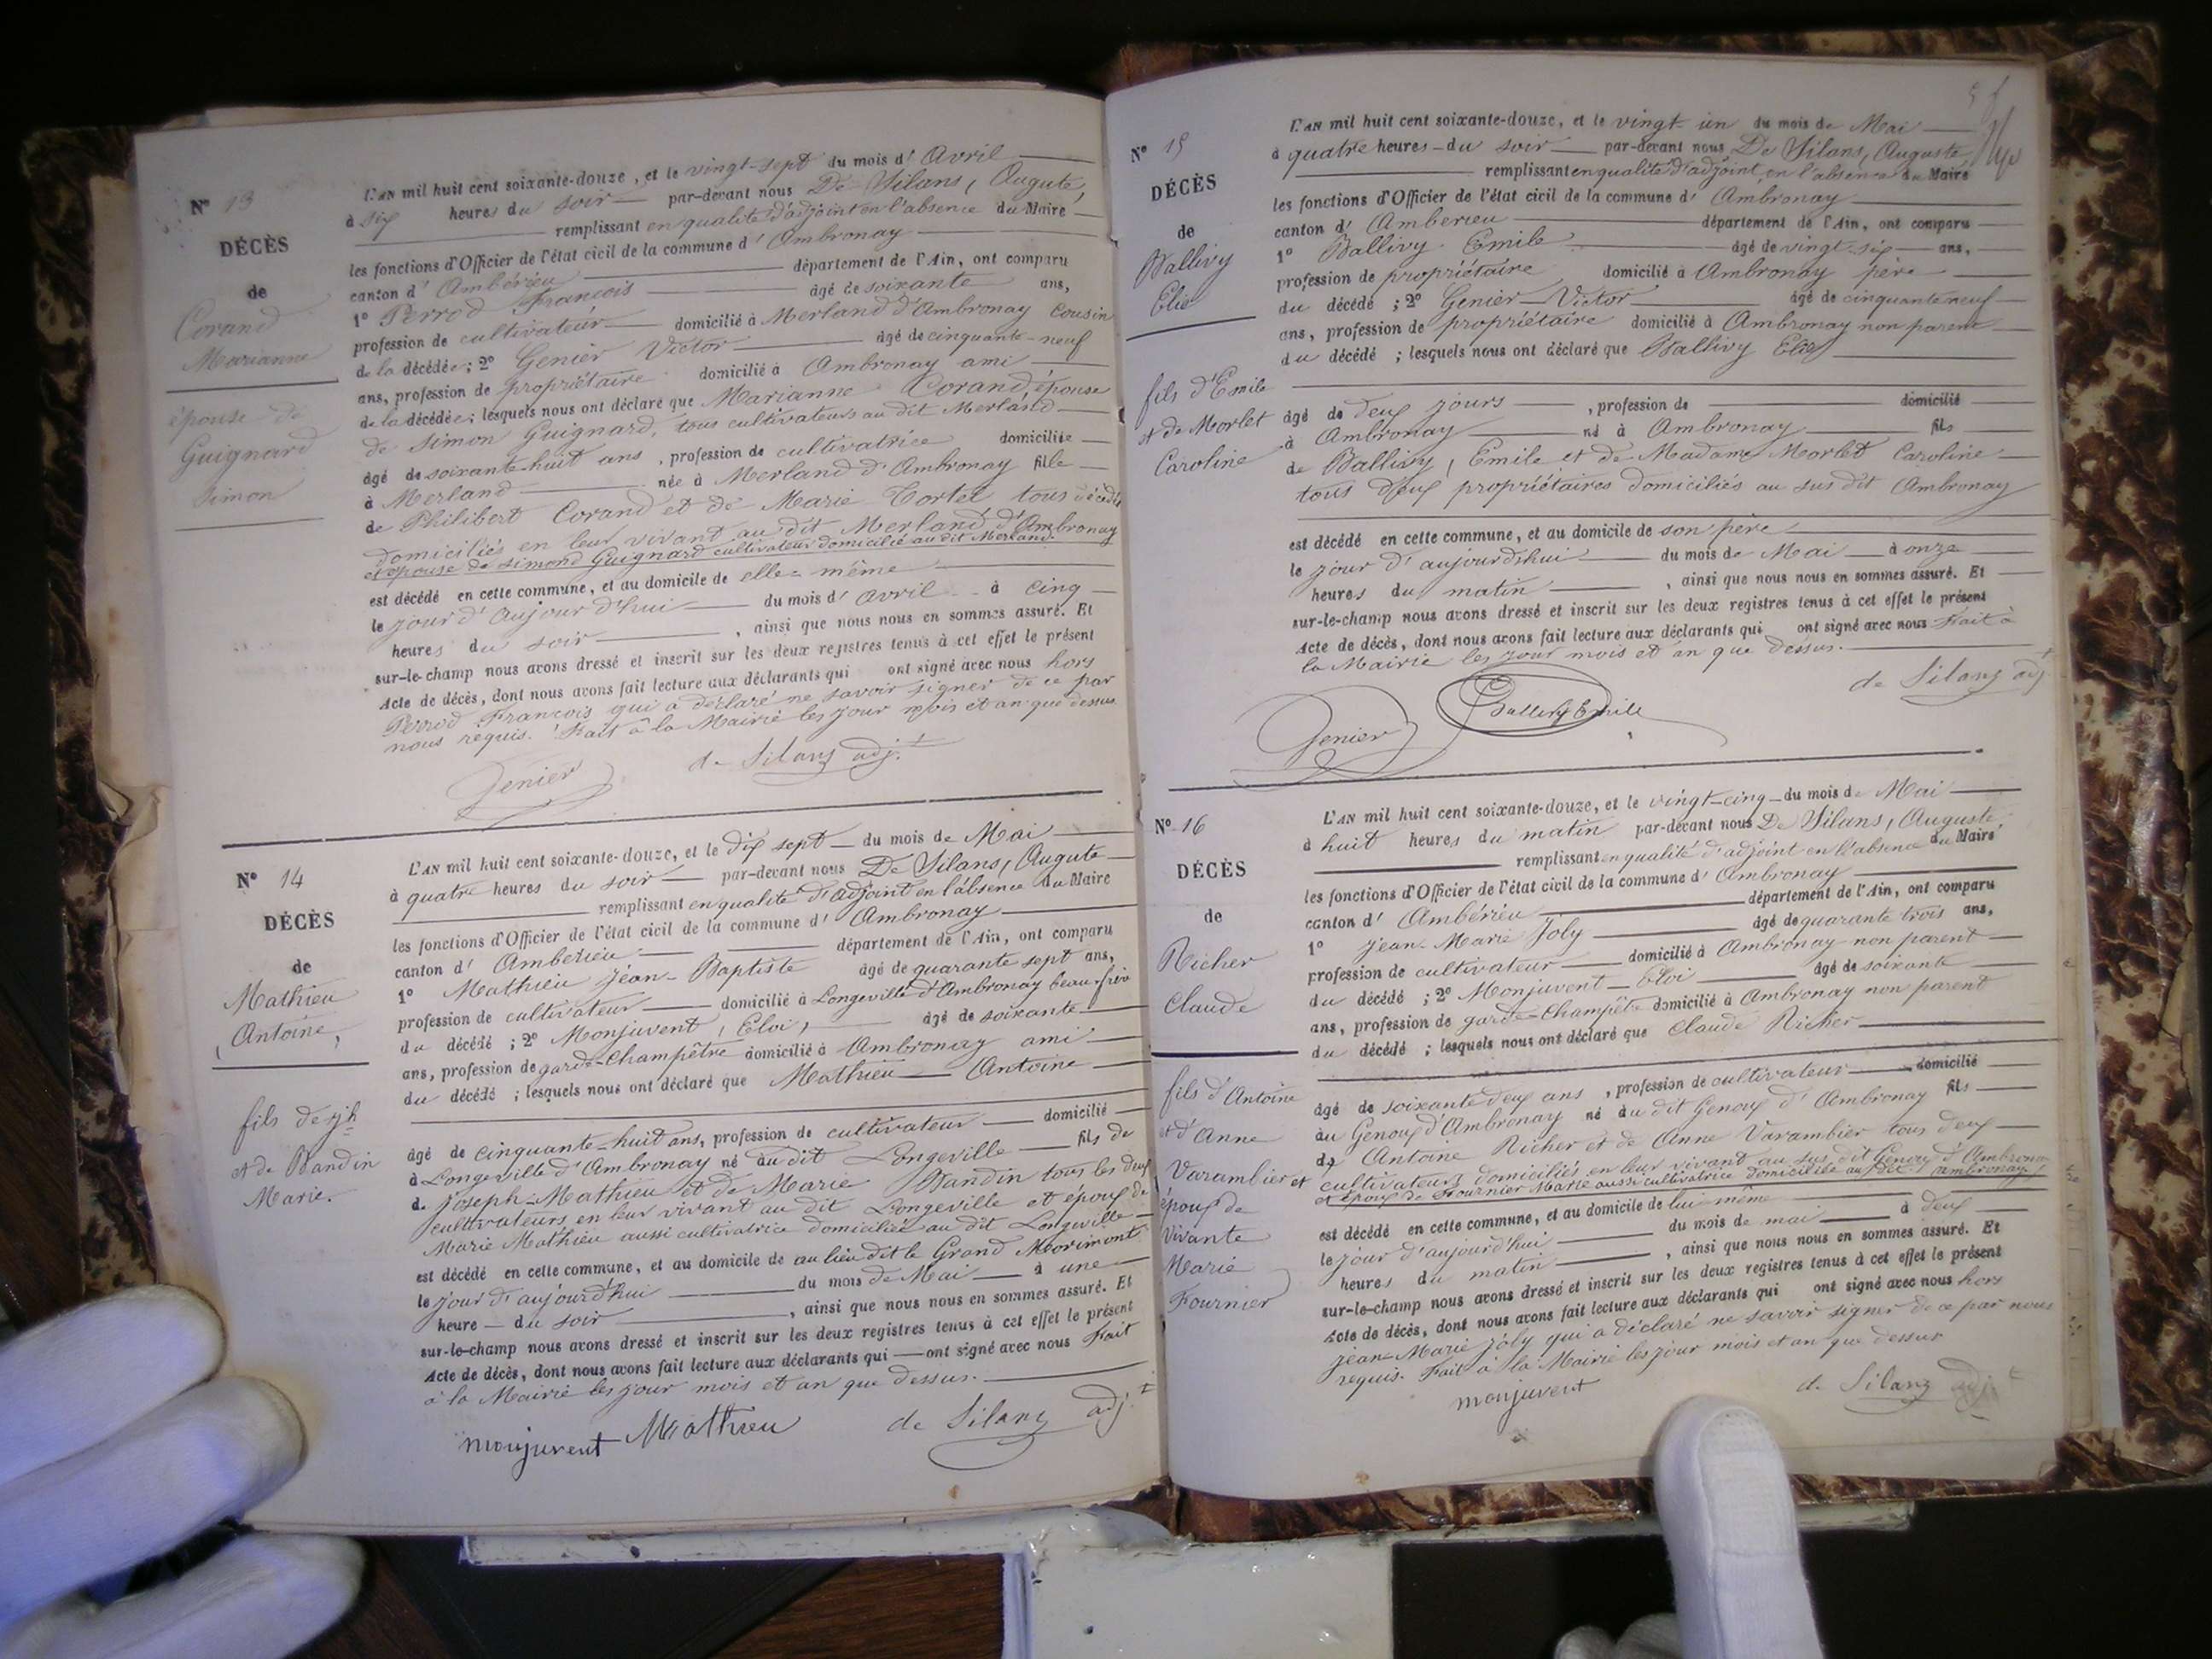 N° 13
DÉCÈS
de
Corand
Marianne
épouse de
Guignard
Simon
L'AN mil huit cent soixante-douze, et le vingt-sept du mois d' Avril
à six heures du soir par-devant nous De Silans, Augute,
remplissant en qualité d'adjoint en l'absence du Maire
les fonctions d'Officier de l'état civil de la commune d' Ambronay
canton d' Ambérieu département de l'Ain, ont comparu
1° Perrod François âgé de soixante ans,
profession de cultivateur domicilié à Merland d'Ambronay cousin
de la décédée; 2° Genier Victor âgé de cinquante-neuf
ans, profession de propriétaire domicilié à Ambronay ami
de la décédée; lesquels nous ont déclaré que Marianne Corand, épouse
de Simon Guignard, tous cultivateurs au dit Merland
âgé de soixante-huit ans, profession de cultivatrice domiciliée
à Merland née à Merland d'Ambronay fille
de Philibert Corand et de Marie Tortel tous décédés
domiciliés en leur vivant au dit Merland d'Ambronay
et épouse de Simond Guignard cultivateur domicilié au dit Merland.
est décédé en cette commune, et au domicile de elle-même
le jour d'aujourd'hui du mois d' Avril à cinq
heures du soir, ainsi que nous nous en sommes assuré. Et
sur-le-champ nous avons dressé et inscrit sur les deux registres tenus à cet effet le présent
Acte de décès, dont nous avons fait lecture aux déclarants qui ont signé avec nous hors
Perrod François qui a déclaré ne savoir signer de ce par
nous requis. Fait à la Mairie les jour mois et an que dessus
Genier de Silans adj.t
N° 14
DÉCÈS
de
Mathieu
Antoine,
fils de jh
et de Bandin
Marie.
L'AN mil huit cent soixante-douze, et le dix sept du mois de Mai
à quatre heures du soir par-devant nous De Silans, Augute
remplissant en qualité d'adjoint en l'absence du Maire
les fonctions d'Officier de l'état civil de la commune d' Ambronay
canton d' Amberieu département de l'Ain, ont comparu
1° Mathieu Jean-Baptiste âgé de quarante sept ans,
profession de cultivateur domicilié à Longeville d'Ambronay beau-frère
du décédé; 2° Monjuvent, Eloi, âgé de soixante
ans, profession de garde-champêtre domicilié à Ambronay ami
du décédé; lesquels nous ont déclaré que Mathieu Antoine
âgé de cinquante-huit ans, profession de cultivateur domicilié
à Longeville d'Ambronay né au dit Longeville fils de
d. Joseph-Mathieu et de Marie Bandin tous les deux
cultivateurs en leur vivant au dit Longeville et époux de
Marie Mathieu aussi cultivatrice domiciliée au dit Longeville
est décédé en cette commune, et au domicile de au lieu dit le Grand Morimont
le jour d'aujourd'hui du mois de Mai à une
heure du soir, ainsi que nous nous en sommes assuré. Et
sur-le-champ nous avons dressé et inscrit sur les deux registres tenus à cet effet le présent
Acte de décès, dont nous avons fait lecture aux déclarants qui ont signé avec nous Fait
à la Mairie les jour mois et an que dessus.
monjuvent Mathieu de Silans adj.t
N° 15
DÉCÈS
de
Ballivy
Elie
fils d'Emile
et de Morlet
Caroline
L'AN mil huit cent soixante-douze, et le vingt un du mois de Mai
à quatre heures du soir par-devant nous De Silans, Auguste
remplissant en qualité d'adjoint en l'absence du Maire
les fonctions d'Officier de l'état civil de la commune d' Ambronay
canton d' Amberieu département de l'Ain, ont comparu
1° Ballivy Emile âgé de vingt-six ans,
profession de propriétaire domicilié à Ambronay père
du décédé; 2° Genier Victor âgé de cinquante neuf
ans, profession de propriétaire domicilié à Ambronay non parent
du décédé; lesquels nous ont déclaré que Ballivy Elie
âgé de deux jours, profession de domicilié
à Ambronay né à Ambronay fils
de Ballivy, Emile et de Madame Morlet Caroline
tous deux propriétaires domiciliés au sus dit Ambronay
est décédé en cette commune, et au domicile de son père
le jour d'aujourdhui du mois de Mai à onze
heures du matin, ainsi que nous nous en sommes assuré. Et
sur-le-champ nous avons dressé et inscrit sur les deux registres tenus à cet effet le présent
Acte de décès, dont nous avons fait lecture aux déclarants qui ont signé avec nous Fait à
la Mairie les jour mois et an que dessus.
Genier Ballivy Emile de Silans adj.t
N° 16
DÉCÈS
de
Richer
Claude
fils d'Antoine
et d'Anne
Varambier et
époux de
Vivante
Marie
Fournier
L'AN mil huit cent soixante-douze, et le vingt-cinq du mois de Mai
à huit heures du matin par-devant nous De Silans, Auguste
remplissant en qualité d'adjoint en l'absence du Maire
les fonctions d'Officier de l'état civil de la commune d' Ambronay
canton d' Ambérieu département de l'Ain, ont comparu
1° Jean-Marie Joly âgé de quarante trois ans,
profession de cultivateur domicilié à Ambronay non parent
du décédé; 2° Monjuvent Eloi âgé de soixante
ans, profession de garde-Champêtre domicilié à Ambronay non parent
du décédé; lesquels nous ont déclaré que Claude Richer
âgé de soixante deux ans, profession de cultivateur domicilié
au Genoux d'Ambronay né au dit Genoux d'Ambronay fils
de Antoine Richer et de Anne Varambier tous deux
cultivateurs domiciliés en leur vivant au sus dit Genoux d'Ambronay
et époux de Fournier Marie aussi cultivatrice domiciliée au dit Ambronay
est décédé en cette commune, et au domicile de lui même
le jour d'aujourd'hui du mois de mai à deux
heures du matin, ainsi que nous nous en sommes assuré. Et
sur-le-champ nous avons dressé et inscrit sur les deux registres tenus à cet effet le présent
Acte de décès, dont nous avons fait lecture aux déclarants qui ont signé avec nous hors
Jean-Marie Joly qui a déclaré ne savoir signer de ce par nous
requis. Fait à la Mairie les jour mois et an que dessus
monjuvent de Silans adj.t